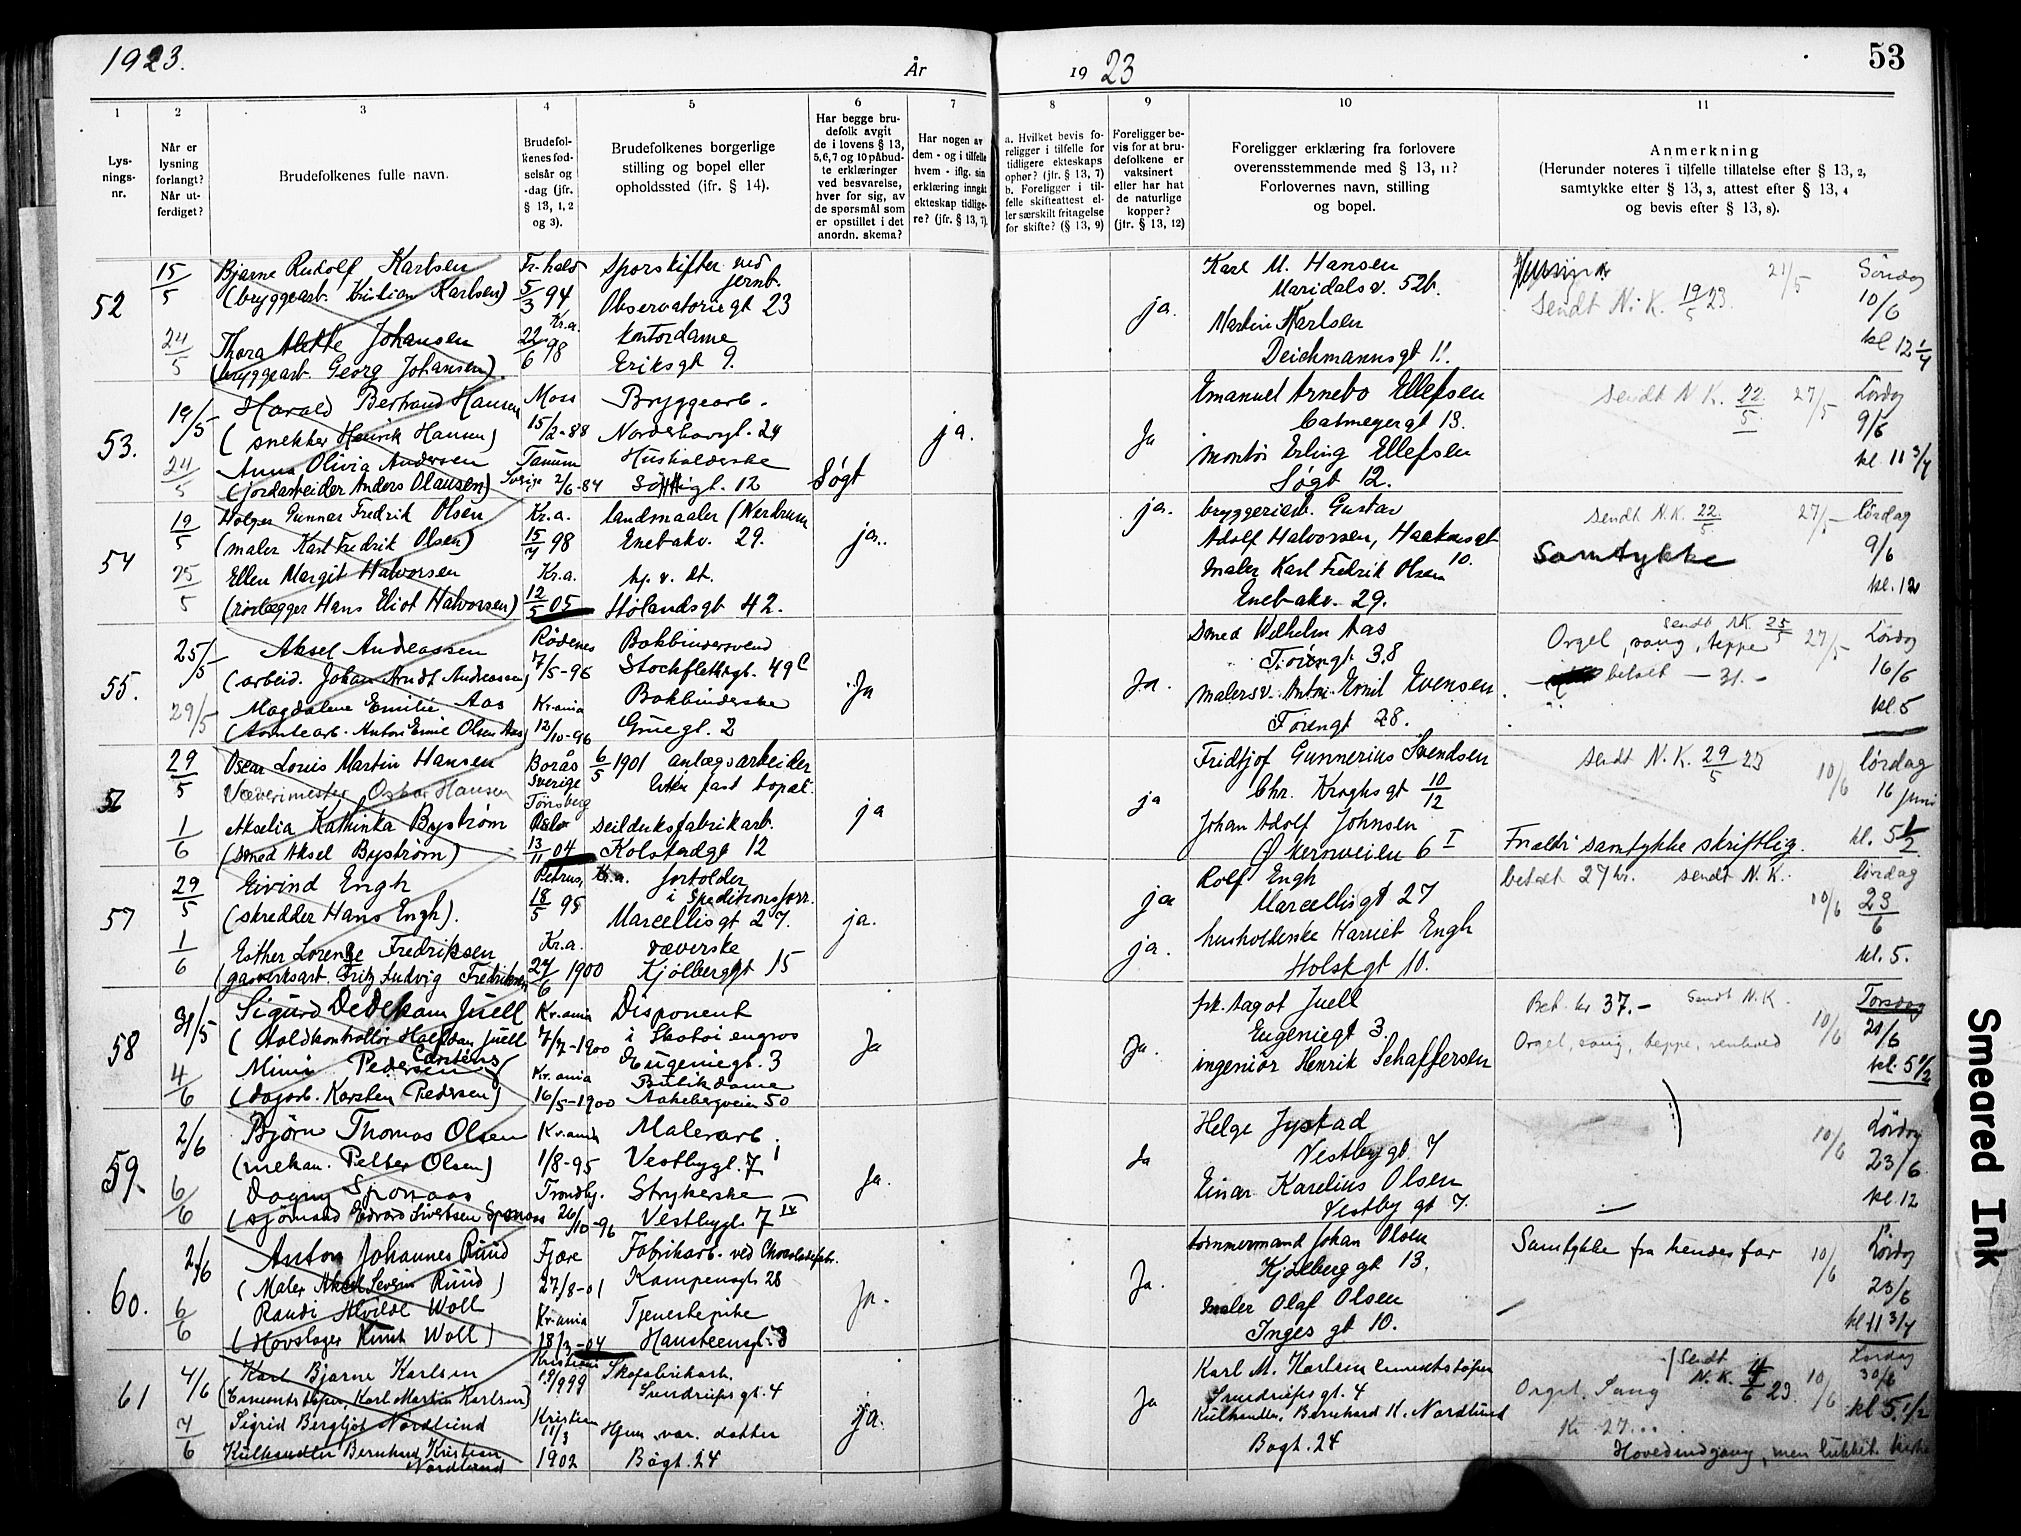 1923.
År
19 23
53
1
2
3
4
5
6
7
8
9
10
11
Lys-
nings-
nr.
Når er
lysning
forlangt?
Når ut-
ferdiget?
Brudefolkenes fulle navn.
Brudefol-
kenes fød-
selsår og
-dag (jfr.
§ 13, 1, 2
og 3).
Brudefolkenes borgerlige
stilling og bopel eller
opholdssted (ifr. § 14).
Har begge bru-
defolk avgit
de i lovens § 13,
5,6,7 og 10 påbud-
te erklæringer
ved besvarelse,
hver for sig, av
de spørsmål som
er opstillet i det
anordn. skema?
Har nogen av
dem - og i tilfelle
hvem - iflg. sin
erklæring inngått
ekteskap tidlige-
re? (jfr. § 13, 7).
a. Hvilket bevis fo-
religger i tilfelle for
tidligere ekteskaps
ophør? (jfr. § 13, 7)
b. Foreligger i til-
felle skifteattest el-
ler særskilt fritagelse
for skifte? (§ 13, 9)
Foreligger be-
vis for at bru-
defolkene er
vaksinert
eller har hat
de naturlige
kopper?
(jfr. § 13, 12)
Foreligger erklæring fra forlovere
overensstemmende med § 13, 11?
Forlovernes navn, stilling
og bopel.
Anmerkning
(Herunder noteres i tilfelle tillatelse efter § 13, 2,
samtykke efter § 13, 3, attest efter § 13, 4
og bevis efter § 13, 8).
52
15/5
Bjarne Rudolf Karlsen
(bryggearb. Kristian Karlsen)
Fr.hald
5/3 94
Sporskifter ved
jernb.
Observatoriegt 23
24/5
Thora Alette Johansen
(bryggearb. Georg Johansen)
Kr.a.
22/6 98
kontordame
Eriksgt 9.
ja.
Karl M. Hansen
Maridalsv. 52b.
Martin Karlsen
Deichmannsgt 11.
Sendt N. K. 19/5 23.
21/5
Søndag
10/6
kl 12 1/4
53.
19/5
Harald Bertrand Hansen
(snekker Henrik Hansen)
Moss
15/2-88
Bryggearb.
Norderhovgt. 24
24/5
Anna Olivia Andersen
(jordarbeider Anders Olausen)
Tanum
Sverige 2/6-84
Husholderske
12
Søgt
ja.
Ja
Emanuel Arnebo Ellefsen
Catmeyergt 13.
montør Erling Ellefsen
Søgt 12.
sendt N. K. 22/5.
27/5
Lørdag
9/6
kl. 11 3/4
54
19/5
Holger Gunnar Fredrik Olsen
(maler Karl Fredrik Olsen)
Kr.a.
15/7 98
landmaaler (Nerdrum
Enebakv. 29.
25/5
Ellen Margit Halvorsen
(rørlægger Hans Eliot Halvorsen)
Kr.a.
12/5 05
hj. v. dt.
Hølandsgt 42.
ja.
ja.
bryggeriarb. Gustav
Adolf Halvorsen, Haakonsgt
10.
maler Karl Fredrik Olsen
Enebakv. 29.
sendt N. K. 22/5
Samtykke
27/5
lørdag
9/6
kl. 12
55.
25/5
Aksel Andreassen
(arbeid. Johan Arndt Andreassen)
Rødenes
7/5-96
Bokbindersvend
Stockflethsgt. 49 C
29/5
Magdalene Emilie Aas
(tomtearb. Anton Emil Olsen Aas)
Kr.ania
12/10-96
Bokbinderske
Gruegt. 2
Ja
Ja.
Smed Wilhelm Aas
Tøiengt. 38
malersv. Anton Emil Evensen.
Tøiengt 28.
sendt N.K. 25/5
Orgel, sang, teppe
betalt - 31.-
27/5
Lørdag
16/6
kl. 5
29/5
Oscar Louis Martin Hansen
Væverimester Oskar Hansen
Borås
Sverige
6/5 1901 anlægsarbeider
uten fast bopæl.
1/6
Akselia Kathinka Bystrøm
(smed Aksel Bystrøm)
Tønsberg
13/11 04
Seilduksfabrikarb.
Kolstadgt 12
ja
ja
Fridtjof Gunnerius Svendsen
Chr. Kroghsgt 10/12
Johan Adolf Johnsen
Økernveien 6 I
sendt N. K. 29/5 23
Foræld. samtykke skriftlig.
10/6
lørdag
16 juni
kl. 5 1/2
57
29/5
Eivind Engh
(skredder Hans Engh).
Petrus, Kr.a.
18/5 95
fortolder
i Speditionsforr.
Marcellisgt 27.
1/6
Esther Lorentze Fredriksen
(gasverksarb. Fritz Ludvig Fredriksen
Kr.a.
24/6 1900
væverske
Kjølberggt 15
ja.
ja
ja.
Rolf Engh
Marcellisgt 27
husholderske Harriet Engh
Holstgt 10.
betalt 27 kr. sendt N. K.
10/6
lørdag
23/6
kl. 5.
58
31/5
Sigurd Dedekam Juell
(Toldkontrollør Halfdan Juell
Kr.ania
7/7-1900
Disponent
i Skotøi engros
Eugeniegt. 3
4/6
Mimi Pedersen
(dagarb. Karsten Pedersen)
Kr.ania
16/5-1900
Butikdame
Aakebergveien 50
Ja
Ja.
frk. Aagot Juell
Eugeniegt 3.
ingeniør Henrik Schaffersen
Bet. kr 37.- Sendt N. K.
Orgel, sang, teppe, renhold
10/6
Torsdag
21/6
kl. 5 1/2
59.
2/6
Bjørn Thomas Olsen
(mekan. Petter Olsen)
Kr.ania
1/8-95
Malerarb.
Vestbygt. 7 I
6/6
Dagny Sponaas
(sjømand Edvard Sivertsen Sponaas
Trondhj.
26/10-96
Strykerske
Vestbygt. 7 IV
Ja.
Ja
Helge Jystad
Vestbygt. 7
Einar Karelius Olsen
Vestby gt 7.
10/6
Lørdag
23/6
kl. 12
60.
2/6
Anton Johannes Ruud
(Maler Aksel Severin Ruud)
Fjære
27/8-01
Fabrikarb. ved Chocoladefabr.
Kampensgt. 28
6/6
Randi Alvilde Woll
(Hovslager Knut Woll)
Kr.ania
18/3-04
Tjenestepike
Hansteensgt. 3
Ja.
Ja.
tømmermand Johan Olsen
Kjølberggt 13.
maler Olaf Olsen
Inges gt 10.
Samtykke fra hendes far
10/6
Lørdag
23/6
kl 11 3/4
61
4/6
Karl Bjarne Karlsen
(Cementstøper, Karl Martin Karlsen)
Kristiania
Skofabrikarb.
Sundrupsgt. 4
7/6
Sigrid Bergljot Nordlund
Kulhandler Bernhard Kristian
Nordlund
Kristian
11/3
1902
Hjem. vær. datter
Bøgt. 24
ja.
Ja
Karl M. Karlsen cementstøper
Sundrupsgt. 4
Kulhandler. Bernhard K. Nordlund
Bøgt. 24
Sendt
N. K. 4/6 23.
Orgel, Sang
Kr. 27...
Hovedindgang, men lukket kirke
10/6
Lørdag
30/6
kl 5 1/2
Smeared Ink